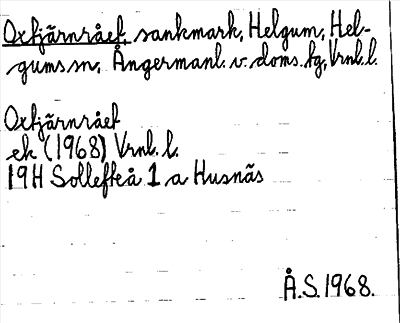 Oxtjärnrået, sankmark, Helgum, Hel-
gums sn, Ångermanl. v. doms. fg, Vrnl. l.
Oxtjärnrået
ek (1968) Vrnl. l.
19H Sollefteå 1 a Husnäs
Å.S. 1968.